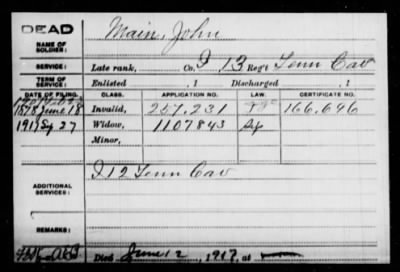 DEAD
NAME OF SOLDIER: Main, John
SERVICE: Late rank, Co. I 13 Reg't Tenn Cav
TERM OF SERVICE: Enlisted , 1 Discharged , 1
DATE OF FILING. CLASS. APPLICATION NO. LAW. CERTIFICATE NO.
1878 June 18 Invalid, 257,231 166,646
1917 Sep 27 Widow, 1107843 Sep
Minor,
ADDITIONAL SERVICES: I 12 Tenn Cav
REMARKS:
Died June 12, 1917, at